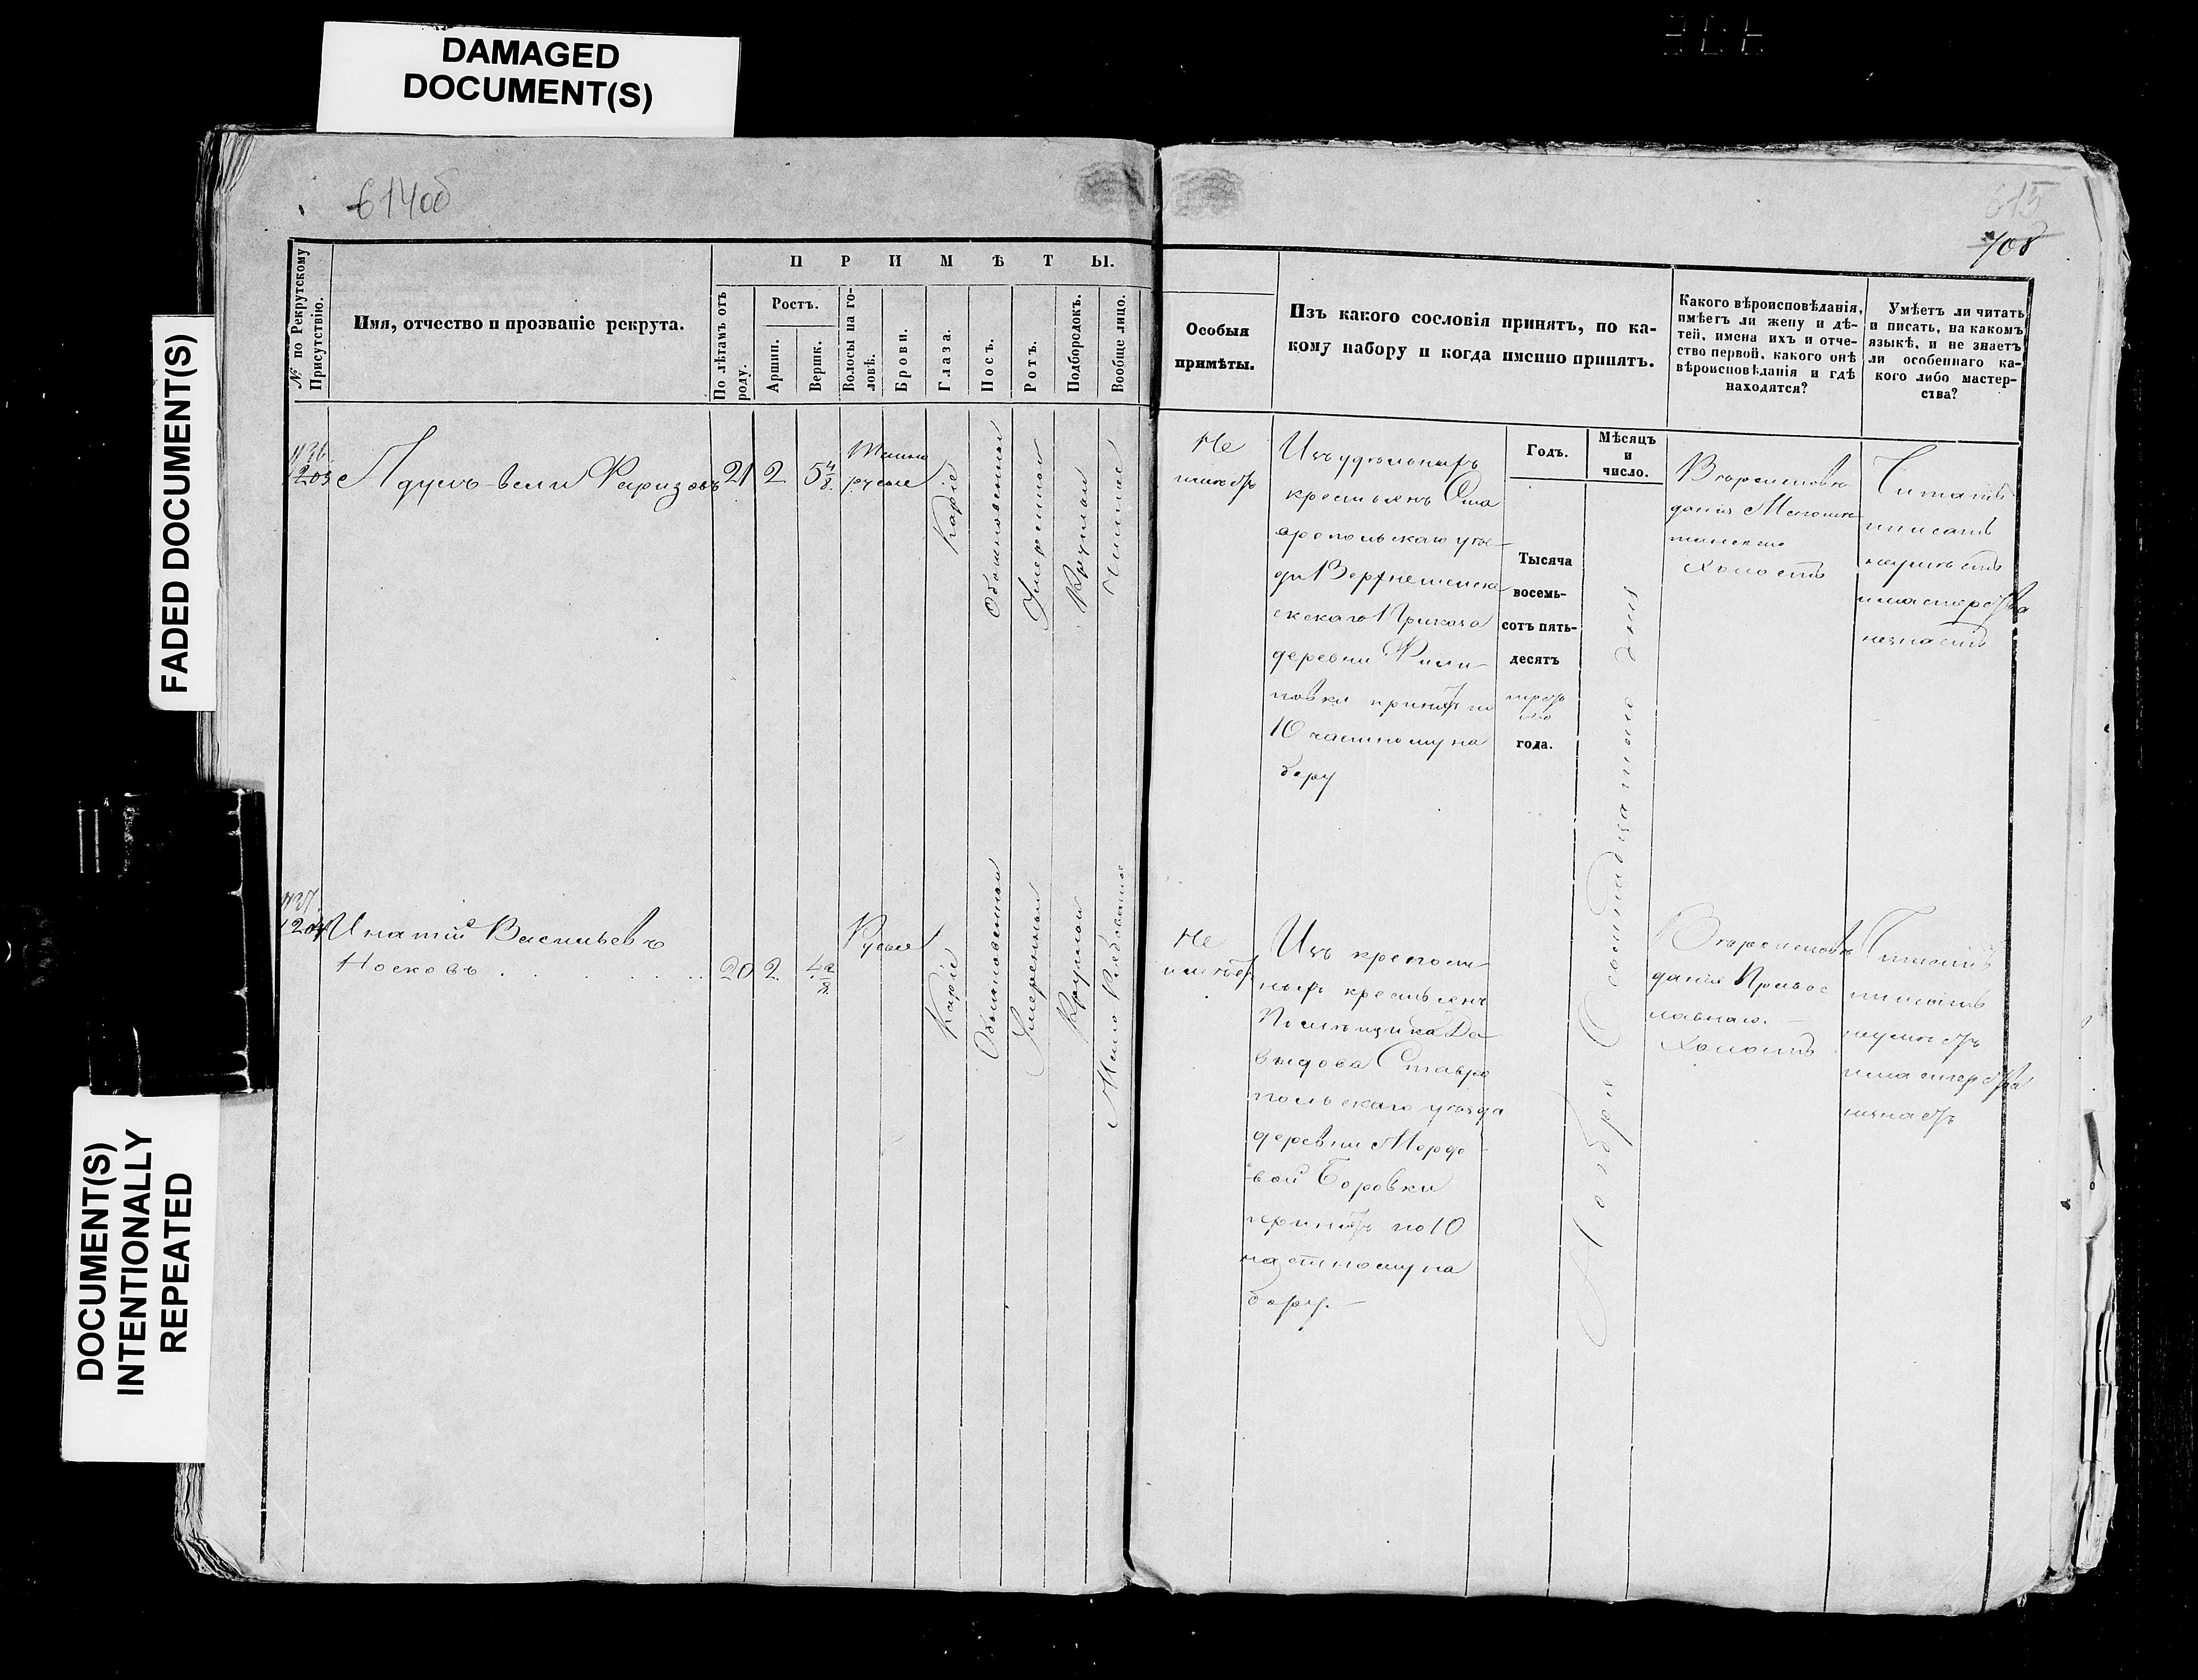 DAMAGED
DOCUMENT(S)
FADED DOCUMENT(S)
DOCUMENT(S)
INTENTIONALLY
REPEATED
614об
615
708
№ по Рекрутскому
Присутствію.
Имя, отчество и прозваніе рекрута.
ПРИМѢТЫ.
По лѣтамъ отъ
роду.
Ростъ.
Аршин.
Вершк.
Волосы на го-
ловѣ.
Брови.
Глаза.
Носъ.
Ротъ.
Подбородокъ.
Вообще лицо.
Особыя
примѣты.
Изъ какого сословія принятъ, по ка-
кому набору и когда именно принятъ.
Годъ.
Мѣсяцъ
и
число.
Какого вѣроисповѣданія,
имѣетъ ли жену и дѣ-
тей, имена ихъ и отче-
ство первой, какого онѣ
вѣроисповѣданія и гдѣ
находятся?
Умѣетъ ли читать
и писать, на какомъ
языкѣ, и не знаетъ
ли особеннаго ка-
кого либо мастер-
ства?
1203
Адулъ-вели Фаризовъ
21
2
5 4/8
Темно
русые
Каріе
Обыкновенный
Умеренной
Круглой
Чистое
Не
имеетъ
Изъ удѣльныхъ
крестьянъ Ста
вропольскаго уѣз
да
Приказа
деревни Фили-
повки принятъ по
10 частному на
бору
Тысяча
восемь-
сотъ пять-
десятъ
третьяго
года.
Ноября Осмнадцатаго дня
Вѣроисповѣ
данія Магоме
танскаго
холостъ
Читать
писать
неумѣетъ
имастерства
незнаетъ
1204
Игнатій Васильевъ
Носковъ
20
2
4 2/8
Русые
Каріе
Обыкновенной
Умеренный
Круглой
Мало Рябоватое
Не
имѣетъ
Изъ крепост-
ныхъ крестьянъ
Помѣщика Да
выдова Ставро
польскаго уѣзда
деревни Мордо
вой Боровки
принятъ по 10
частному на
бору.
Вѣроисповѣ
данія Правос
лавнаго.
холостъ
Читать
писать
неумѣетъ
имастерства
незнаетъ